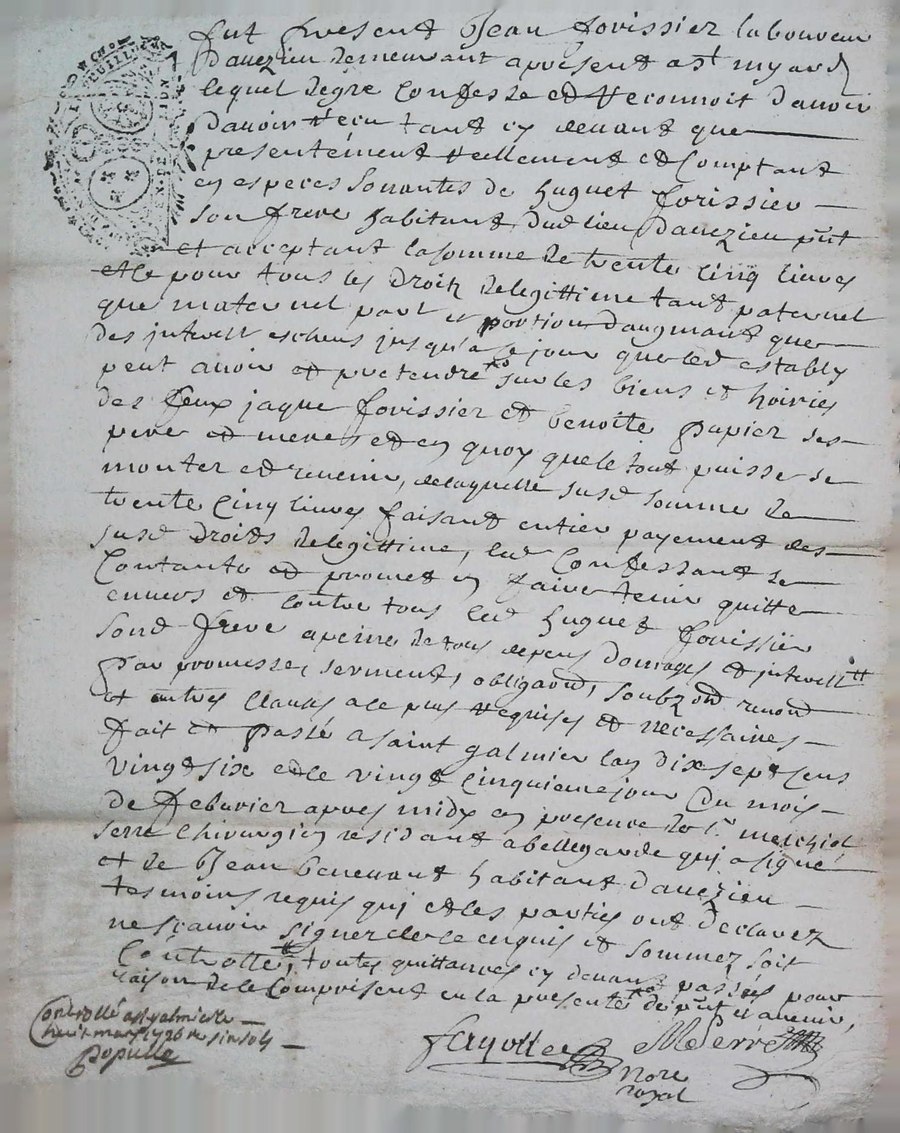 fut present Jean forissier laboureur
Dauezieu demeurant apresent a st myard
lequel de gre Confesse et Reconnoit dauoir
dauoir recu tant cy deuant que
presentement reellement et Comptant
en especes sonnantes de huguet forissier
son frere habitant dud lieu dauezieu pnt
et acceptant la somme de trente cinq liures
et ce pour tous les droitz de legittime tant paternel
que maternel part et portion daugmant que
des jnterest escheus jusqu'a ce jour que led estably
peut auoir et pretendre sur les biens et hoiries
des feux jaque forissier et benoite papier ses
pere et mere, et en quoy que le tout puisse se
monter et reuenir, de laquelle susd somme de
trente cinq liures faisant entier payement des
susd droits de legittime, led Confessant se
Contante et promet en faire tenir quitte
enuers et contre tous led huguet forissier
sond frere a peine de tous depens domages et jnterestz
par promesse, serment, obligaond, soubz ond renond
et autres clauses a ce plus requises et necessaires
fait et passé a saint galmier lan dix sept cens
vingt six et le vingt cinquieme jour du mois
de feburier apres midy en presence de sr. melchiol
serre chirurgien residant a bellegarde qui a signé
et de Jean benevant habitant dauezieu
tesmoins requis qui et les parties ont declarez
ne scauoir signer de ce enquis et sommez soit
Controllé, toutes quittances cy deuant passées pour
raison de ce Comprisent en la presente de pnt et auenir,
Controllé a st galmier le
huit mars 1726 r sinq sols
Populle
fayolle
MSerre
Nore
royal